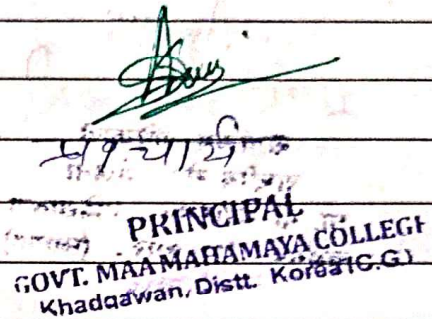 प्राचार्य
PRINCIPAL
GOVT. MAA MAHAMAYA COLLEGE
Khadgawan, Distt. Korea (C.G.)